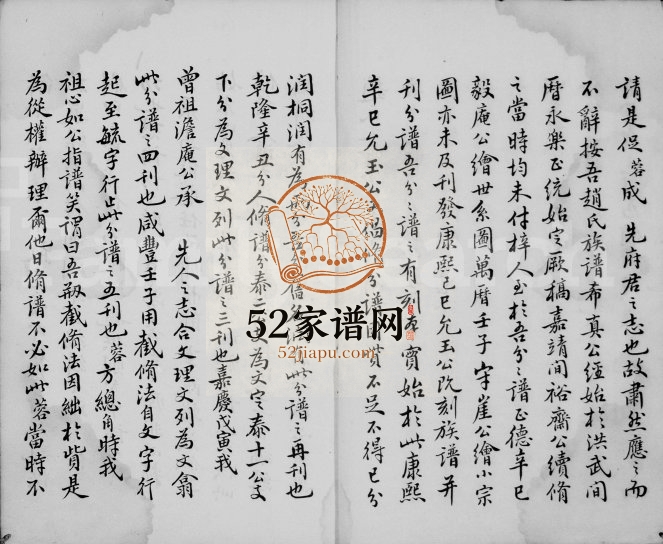 請是促蓉成 先府君之志也故肅然應之而
不辭按吾趙氏族譜希真公經始於洪武間
曆永樂正統始定厥稿嘉靖間裕齋公續脩
之當時均未付梓人至於吾分之譜正德辛巳
毅庵公繪世系圖萬曆壬子字崖公繪小宗
圖亦未及刊發康熙己巳允玉公既刻族譜并
刊分譜吾分之譜之有刻本實始於此康熙
辛巳允玉公 分譜 貲不足不得已分
潤桐潤有為 分 此分譜之再刊也
乾隆辛丑分人脩譜分泰二 為文定泰十一公支
下分為文理文列此分譜之三刊也嘉慶戊寅我
曾祖澹庵公承 先人之志合文理文列為文翕
此分譜之四刊也咸豐壬子用截脩法自文字行
起至毓字行止此分譜之五刊也蓉方總角時我
祖心如公指譜笑謂曰吾刱截脩法因絀於貲是
為從權辦理爾他日脩譜不必如此蓉當時不
52家谱网
52jiapu.com